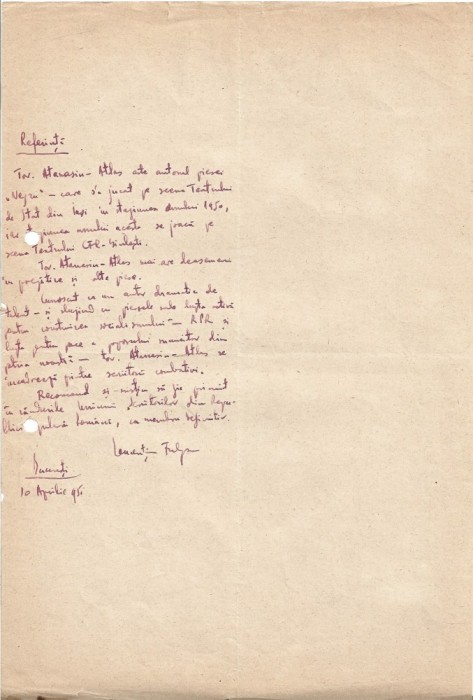 Referință
Tov. Atanasiu-Atlas este autorul piesei
care s'a jucat pe scena Teatrului
de Stat din Iași în stagiunea anului 1950,
iar stagiunea anului acesta se joacă pe
scena Teatrului CFR-Giulești.
Tov. Atanasiu-Atlas mai are deasemeni
în proiective și alte piese.
Cunoscut ca un autor dramatic de
talent - și slujind cu piesele sale lupta
pentru construirea socialismului RPR și
lupta pentru pace a poporului muncitor din
patria noastră - tov. Atanasiu-Atlas se
printre scriitorii combativi.
Recomand și susțin să fie primit
în rândurile Uniunii Scriitorilor din Repu-
blica Populară Română, ca membru definitiv.
Laurențiu Fulga
București
10 Aprilie 951